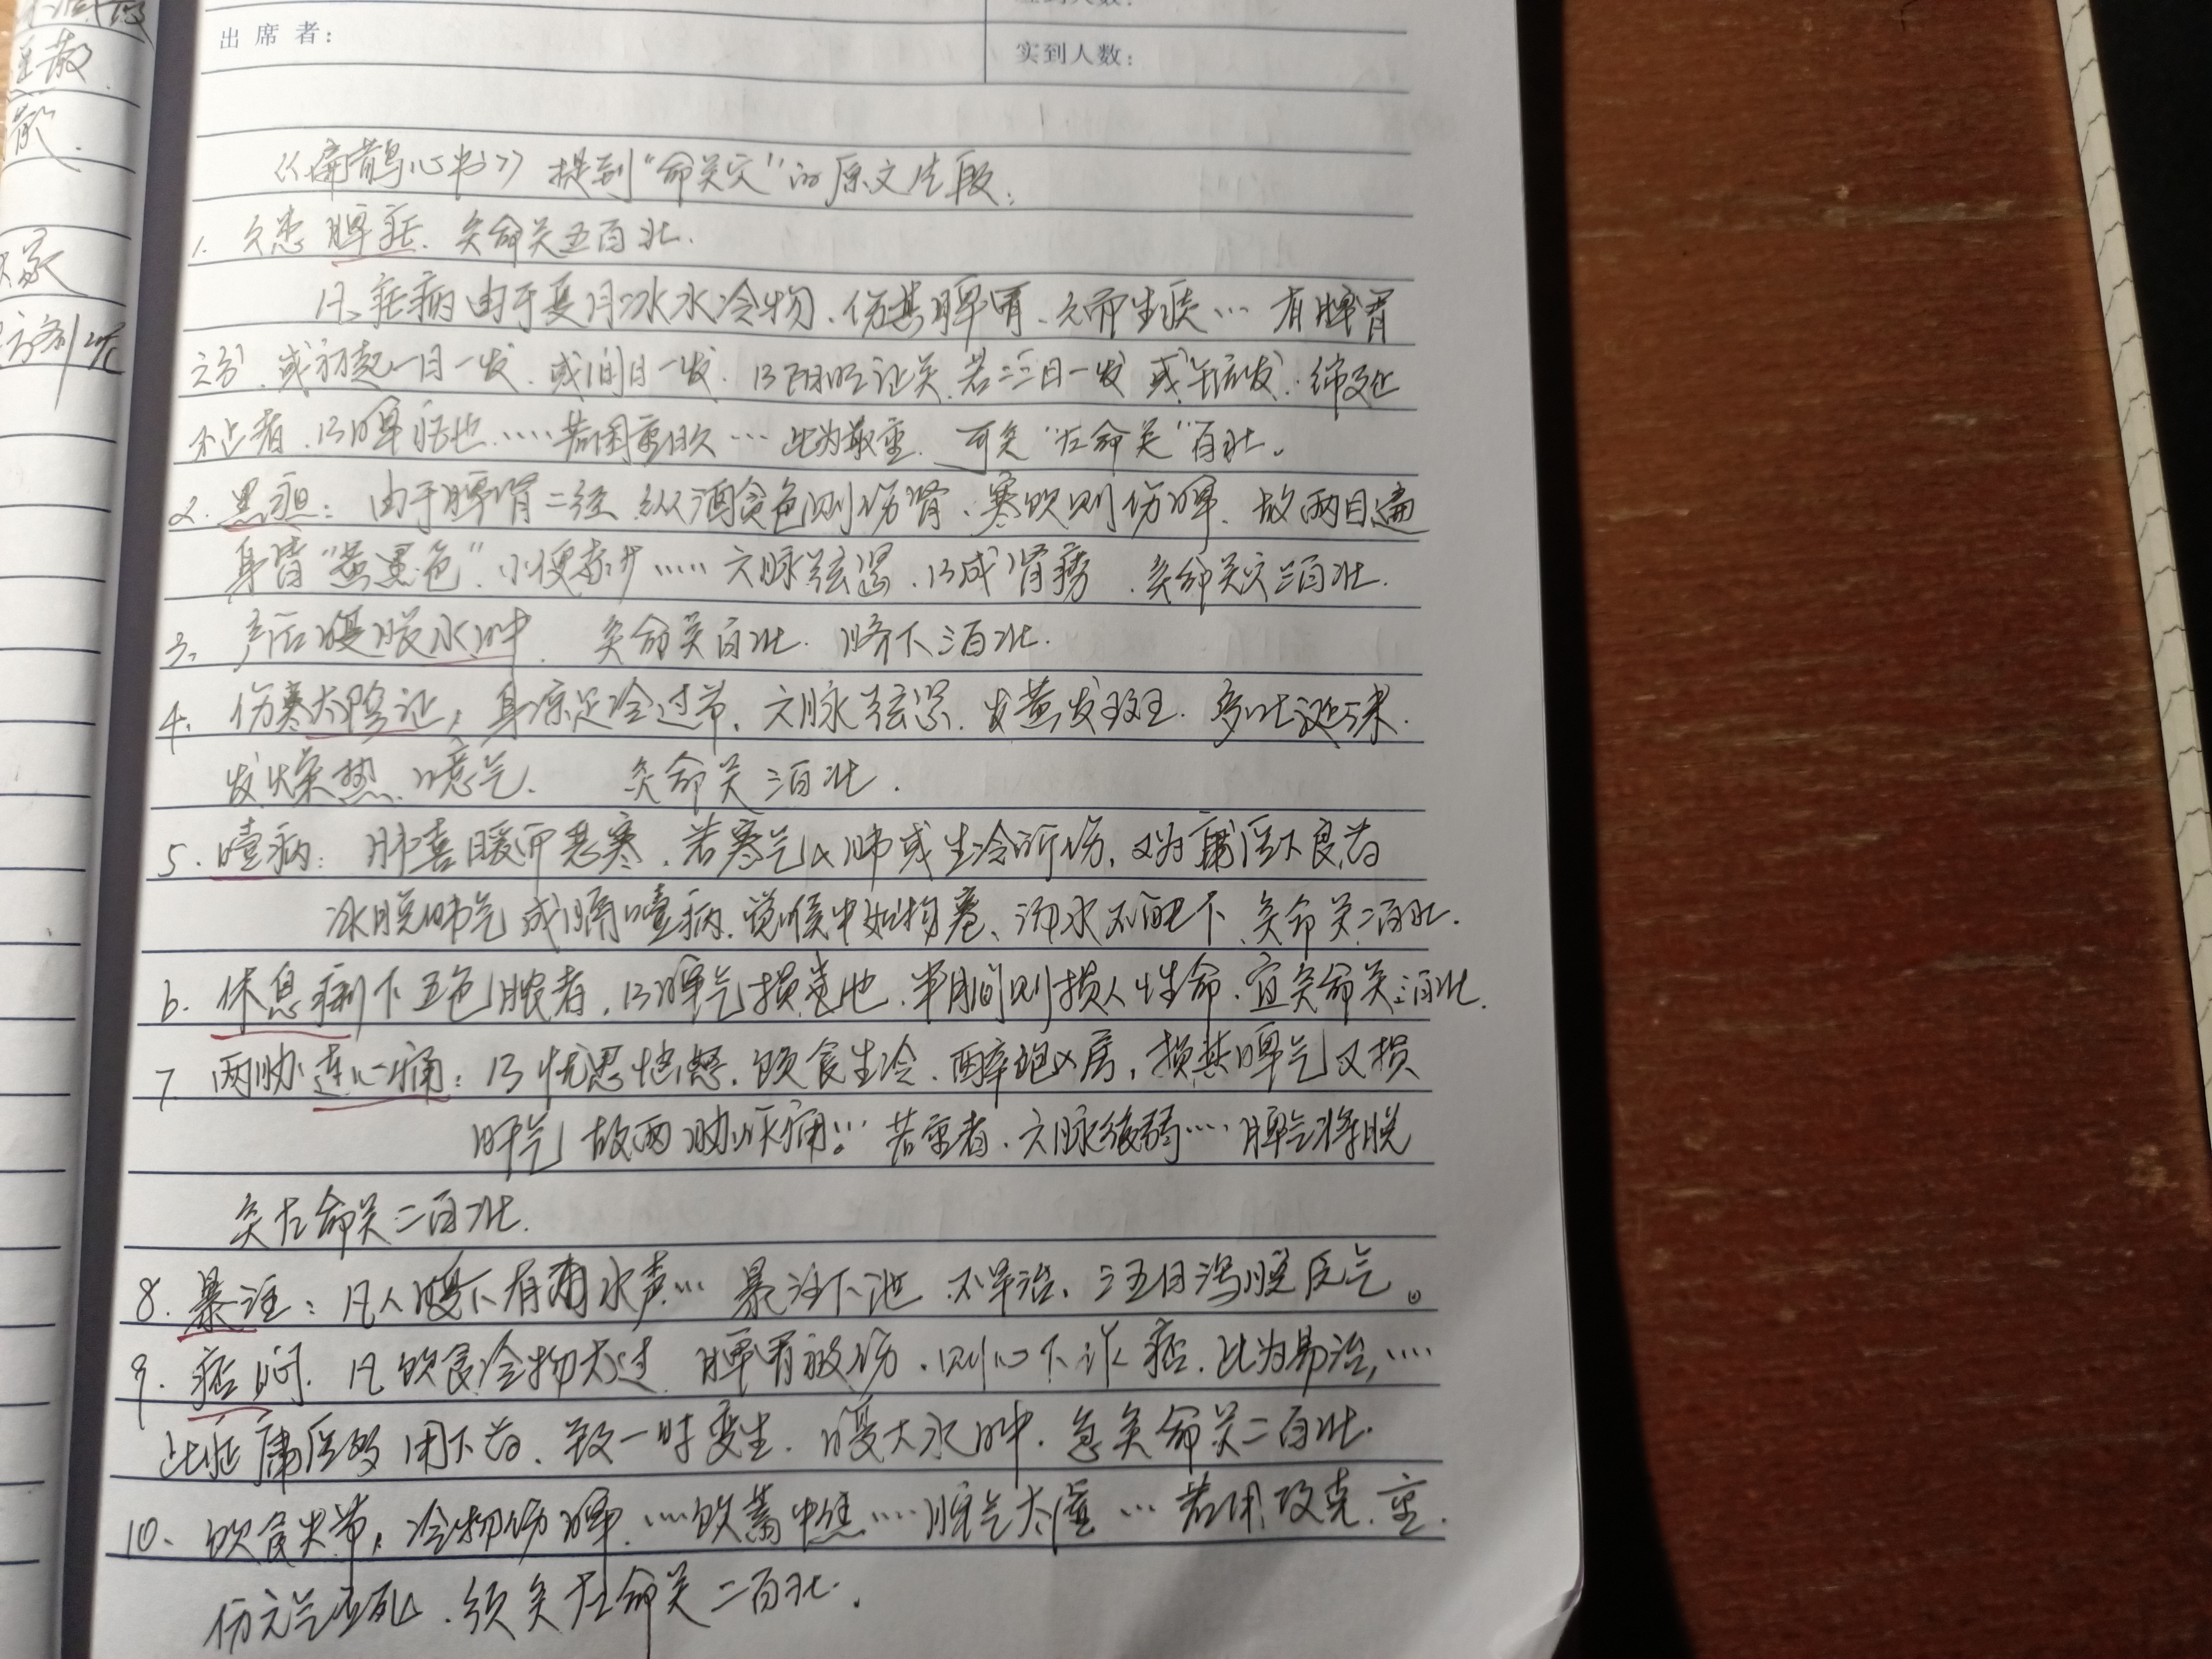 出席者：
实到人数：
散
散
《扁鹊心书》提到"命关穴"的原文片段：
1. 久患脾疟．灸命关五百壮．
凡疟病由于夏月冰水冷物、伤其脾胃、久而生痰… 有脾胃
之分、或初起一日一发．或间日一发．乃阳明证矣．若三日一发 或午后发．绵延
不止者．乃脾疟也……若困重日久… 此为最重．可灸"左命关"百壮。
2. 黑疸：由于脾肾二经 纵酒贪色则伤肾、寒饮则伤脾．故两目遍
身皆"黄黑色"．小便赤少……六脉弦紧．乃成肾痨．灸命关穴三百壮．
3、产后腹胀水肿．灸命关百壮．脐下三百壮．
4. 伤寒太阴证，身凉足冷过节．六脉弦紧．发黄发斑．多吐涎沫．
发燥热．噫气．灸命关三百壮．
5. 噎病：肺喜暖而恶寒．若寒气入肺或生冷所伤．又为庸医下凉药
冰脱肺气 成膈噎病．觉喉中如物塞、汤水不能下、灸命关二百壮．
6. 休息痢下五色脓者．乃脾气损也．半月间则损人性命．宜灸命关三百壮．
7. 两胁连心痛：乃忧思恼怒．饮食生冷、醉饱入房，损其脾气又损
肝气 故两胁作痛。… 若重者．六脉微弱…… 脾气将脱
灸左命关二百壮．
8. 暴注：凡人腹下有水声… 暴注下泄 不早治．三五日泻脱元气。
9. 痞闷．凡饮食冷物太过 脾胃被伤．则心下作痞．此为易治．……
此证庸医多用下药．致一时变生．腹大水肿．急灸命关二百壮．
10、饮食失节，冷物伤脾．……饮蓄中焦……脏气大虚… 若用攻克．重
伤元气立死．须灸左命关二百壮．